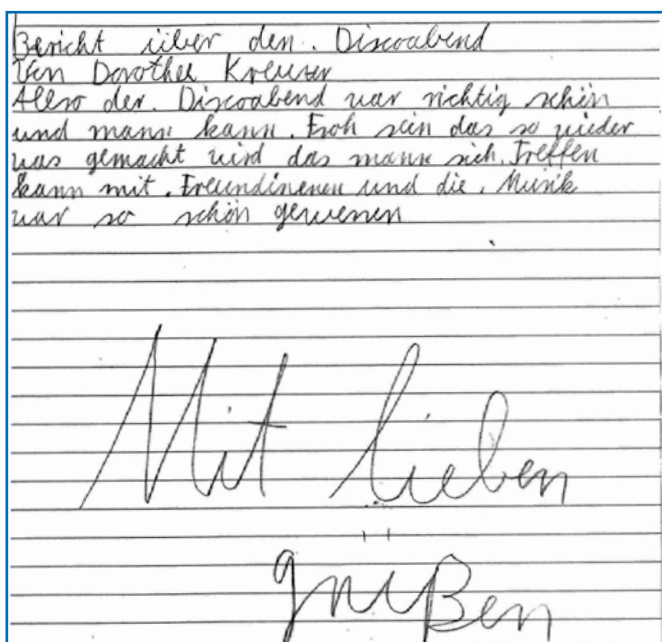 Bericht über den. Discoabend
Von Dorothee Kreuser
Allso der. Discoabend war richtig schön
und mann kann. Froh sein das so wieder
was gemacht wird das mann sich. Treffen
kann mit. Freundinenen und die. Musik
war so schön gewesen
Mit lieben
grüßen